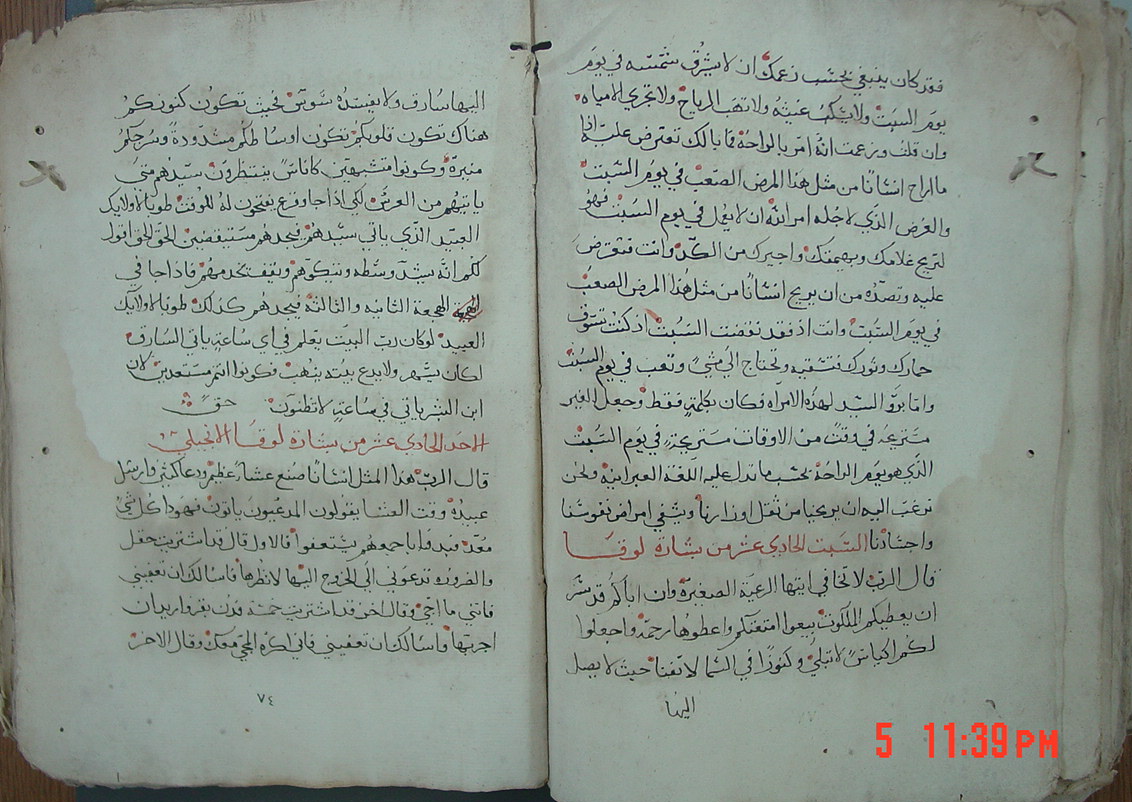 فقد كان ينبغي بحسب زعمك ان لا يشرق شمسه في يوم
يوم السبت ولا يسكب غيثه ولا تهب الرياح ولا تجري الامياه
وان قلت وزعمت انه امر بالراحة فما بالك تعترض عليه اذا
ما اراح انسانا من مثل هذا المرض الصعب في يوم السبت
والغرض الذي لاجله امر الله ان لا يعمل في يوم السبت فهو
لتريح غلامك وبهيمتك واجيرك من الكد وانت فتعترض
عليه وتصده من ان يريح انسانا من مثل هذا المرض الصعب
في يوم السبت وانت اذ فقد نقضت السبت اذ كنت تسوق
حمارك وثورك فتسقيه وتحتاج الي مشي وتعب في يوم السبت
واما بروّ السيد لهذه الامراه فكان بكلمة فقط وجعل الغير
مستريحه في وقت من الاوقات مستريحة في يوم السبت
الذي هو يوم الراحة بحسب ما تدل عليه اللغة العبرانية ونحن
نرغب اليه ان يريحنا من ثقل اوزارنا ويشفي امراض نفوسنا
واجسادنا السبت الحادي عشر من بشارة لوقا
قال الرب لا تخافي ايتها الرعية الصغيرة وان اباكم قد سر
ان يعطيكم الملكوت بيعوا امتعتكم واعطوها رحمة واجعلوا
لكم اكياسا لا تبلي وكنوزا في السما لا تفنا حيث لا يصل
اليها
اليها سارق ولا يفسده سوس فحيث تكون كنوزكم
هناك تكون قلوبكم تكون اوساطكم مشدودة وسرجكم
منيرة وكونوا متشبهين كاناس ينتظرون سيدهم متي
ياتيهم من العرس لكي اذا جا وقرع يفتحون له للوقت طوبا لاولايك
العبيد الذي ياتي سيدهم فيجدهم مستيقضين الحق الحق اقول
لكم انه يشد وسطه ويتكوهم ويقف يخدمهم فاذا جا في
الهجعة الثانيه والثالثة فيجدهم كذلك طوبا لاولايك
العبيد لو كان رب البيت يعلم في اي ساعة ياتي السارق
لكان يسهر ولا يدع بيته ينهب فكونوا انتم مستعدين لان
ابن البشر ياتي في ساعة لا تظنون
الاحد الحادي عشر من بشارة لوقا الانجيلي
قال الرب هذا المثل انسانا صنع عشا عظيم ودعا كثير وارسل
عبيده وقت العشا يقولون المدعيون ياتون فهوذا كل شي
معد فبدوا باجمعهم يستعفوا فالاول قال قد اشتريت حقل
والضروره تدعوني الي الخروج اليها لانظرها فاسالك ان تعفيني
فانني ما اجي وقال اخر قد اشتريت خمسة فدن بقر واريد ان
اجربها واسالك ان تعفيني فاني اكره المجي معك وقال الاخر
٧٤
5 11:39 PM